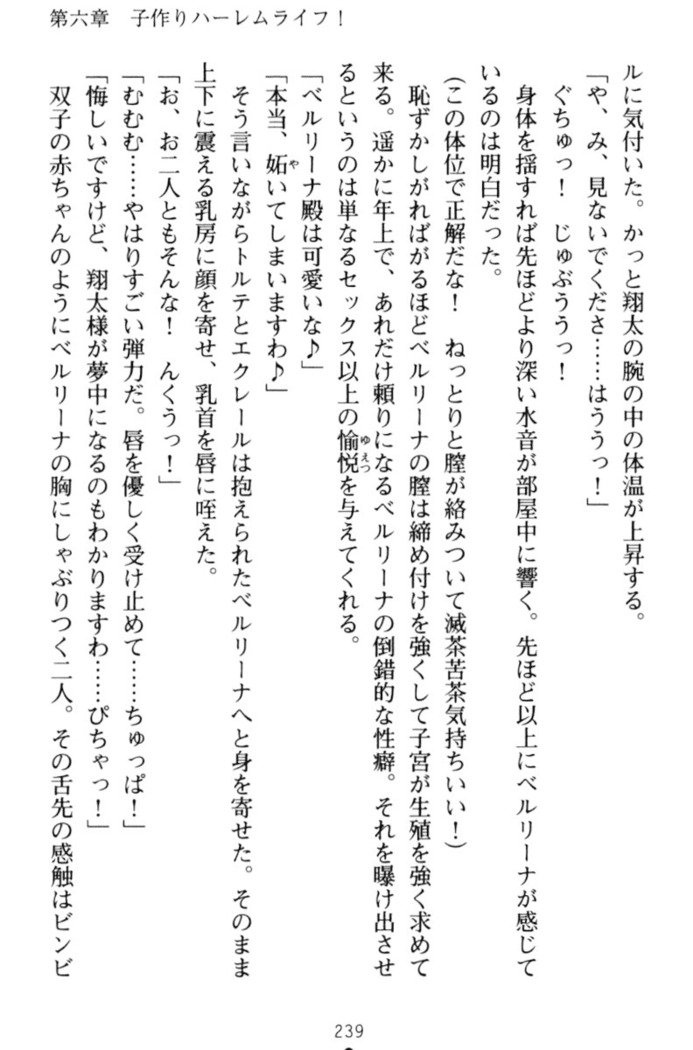 第六章　子作りハーレムライフ！
ルに気付いた。かっと翔太の腕の中の体温が上昇する。
「や、み、見ないでくださ……はううっ！」
ぐちゅっ！　じゅぶううっ！
身体を揺すれば先ほどより深い水音が部屋中に響く。先ほど以上にベルリーナが感じて
いるのは明白だった。
（この体位で正解だな！　ねっとりと膣が絡みついて滅茶苦茶気持ちいい！）
恥ずかしがればがるほどベルリーナの膣は締め付けを強くして子宮が生殖を強く求めて
来る。遥かに年上で、あれだけ頼りになるベルリーナの倒錯的な性癖。それを曝け出させ
るというのは単なるセックス以上の愉悦ゆえつを与えてくれる。
「ベルリーナ殿は可愛いな♪」
「本当、妬やいてしまいますわ♪」
そう言いながらトルテとエクレールは抱えられたベルリーナへと身を寄せた。そのまま
上下に震える乳房に顔を寄せ、乳首を唇に咥えた。
「お、お二人ともそんな！　んくうっ！」
「むむむ……やはりすごい弾力だ。唇を優しく受け止めて……ちゅっぱ！」
「悔しいですけど、翔太様が夢中になるのもわかりますわ……ぴちゃっ！」
双子の赤ちゃんのようにベルリーナの胸にしゃぶりつく二人。その舌先の感触はビンビ
239